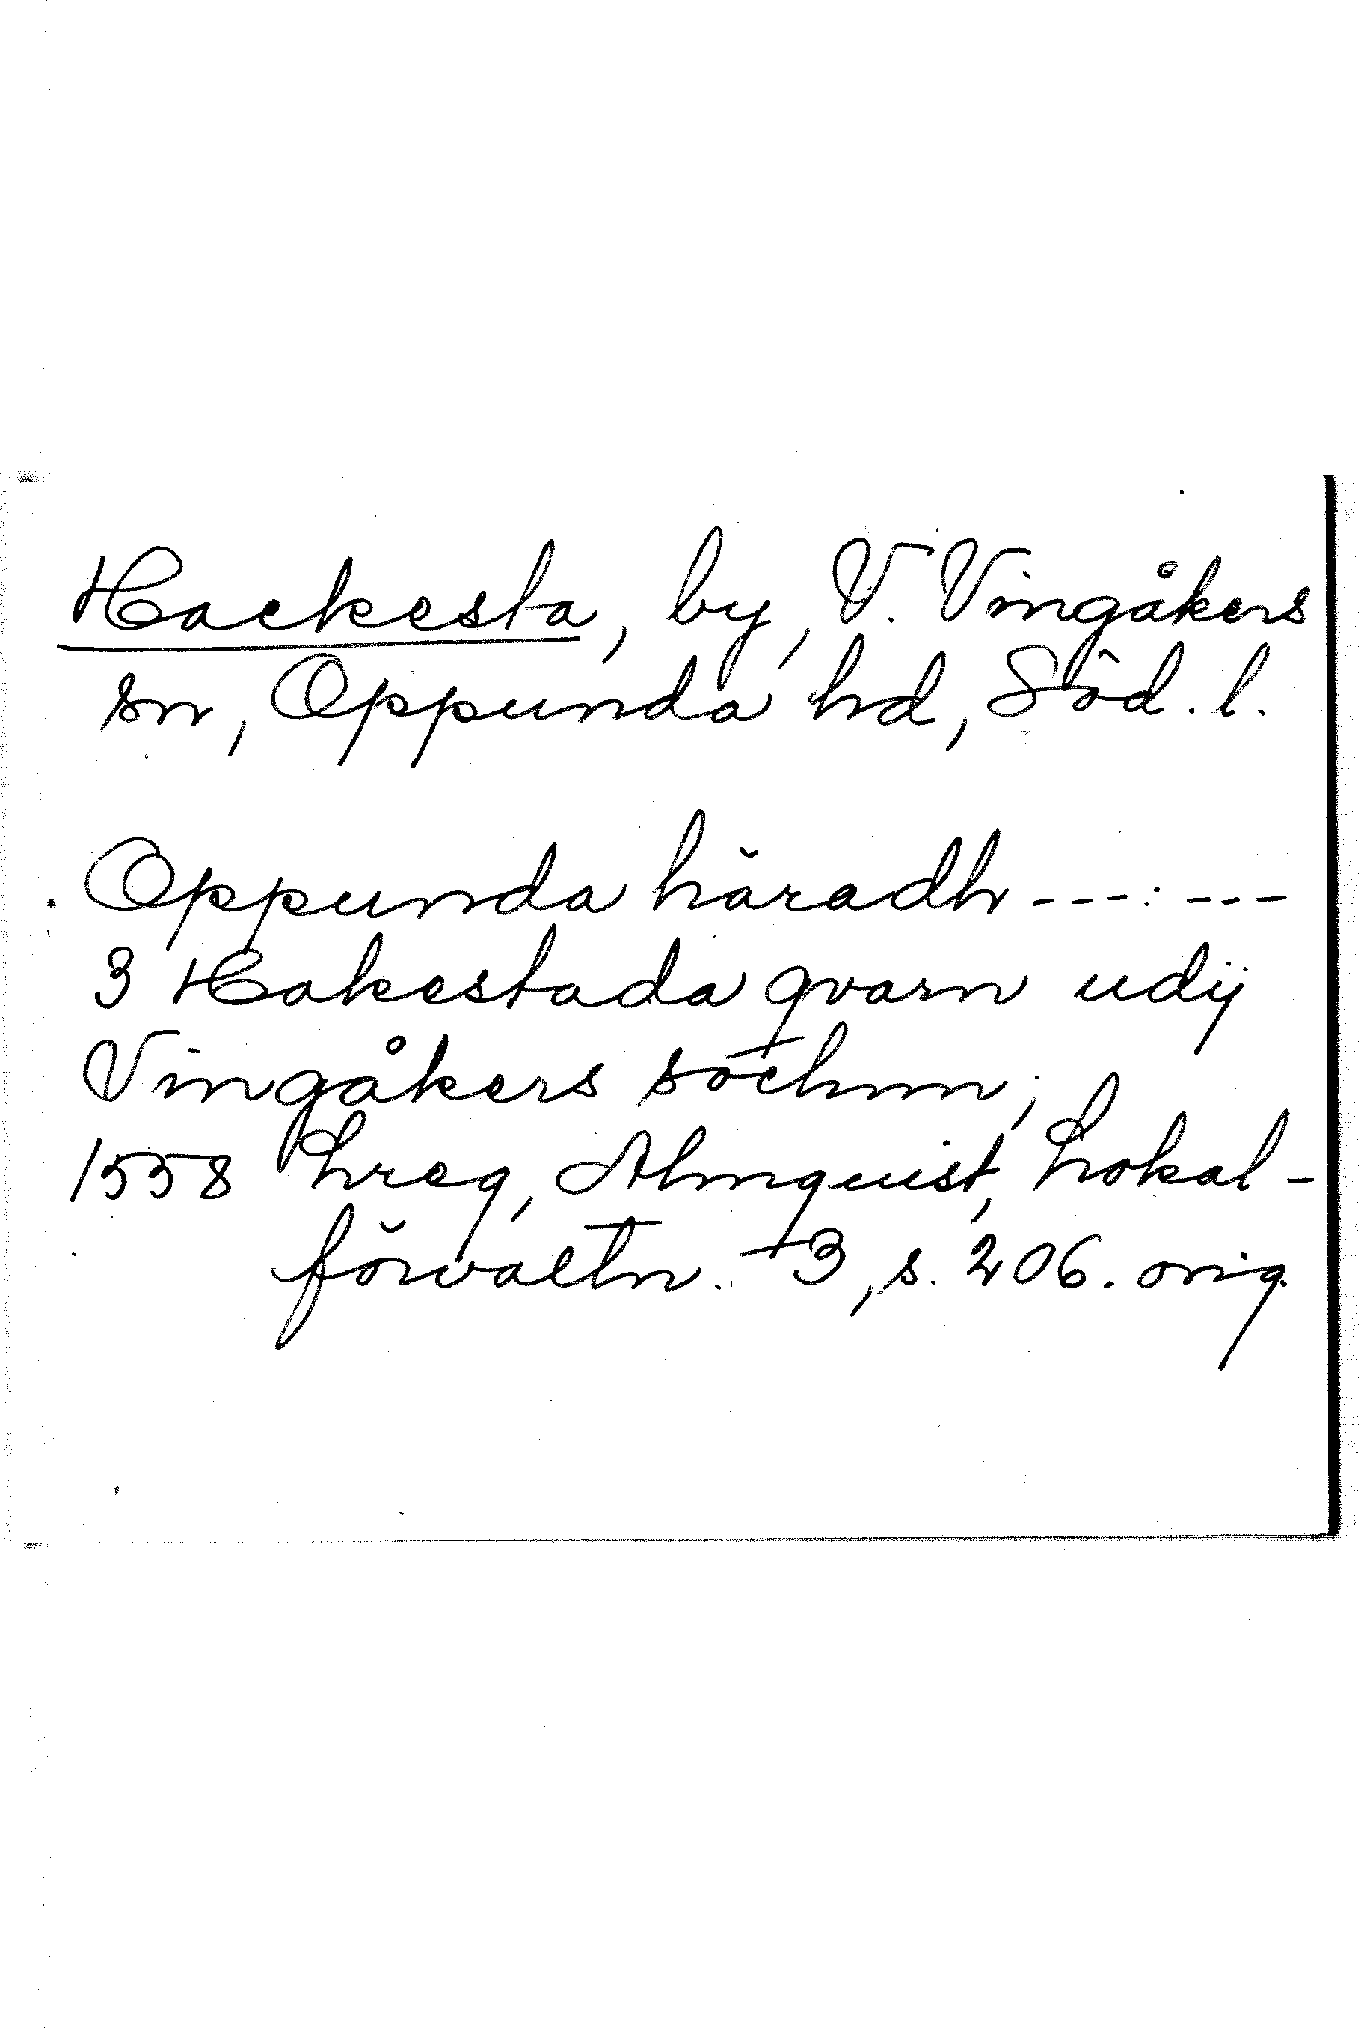 Hackesta, by, V. Vingåkers
sn, Oppunda hd, Söd. l.
Oppunda häradh ---:---
3 Hakestada qvarn udij
Vingåkers sochnn;
1558 hreg, Almquist, Lokal-
förvaltn. 3, s. 206. orig.